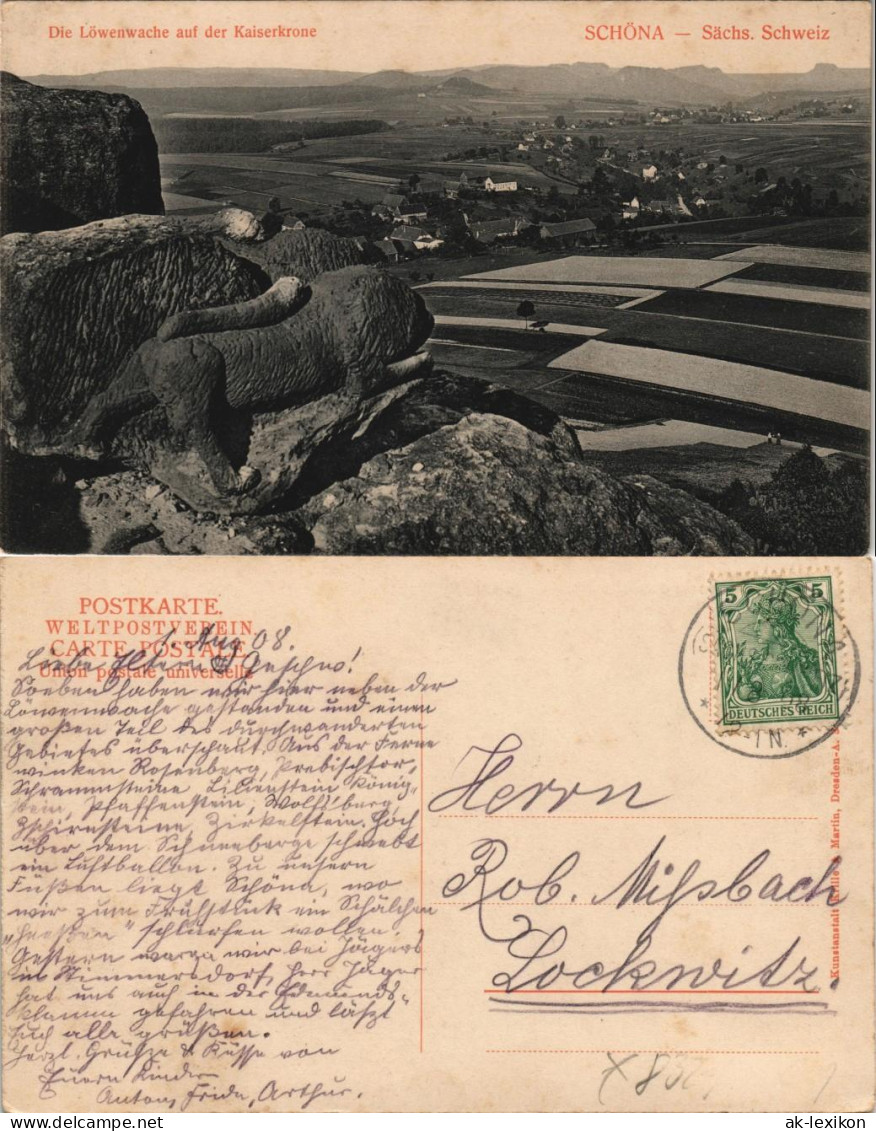 Die Löwenwache auf der Kaiserkrone
SCHÖNA — Sächs. Schweiz
POSTKARTE.
WELTPOSTVEREIN.
CARTE POSTALE.
Union postale universelle
Aug 08.
Liebe Eltern
Soeben haben wir hier neben der
Löwenwache gestanden und einen
großen Teil des durchwanderten
Gebietes überschaut. Aus der Ferne
winken Rosenberg, Prebischtor,
Schrammsteine, Lilienstein, König-
stein, Pfaffenstein, Wolfsberg,
Zschirnsteine, Zirkelstein. Hoch
über dem Schneeberge schwebt
ein Luftballon. Zu unsern
Füßen liegt Schöna, wo
wir zum Frühstück ein Schälchen
„Heeßen" schlürfen wollen.
Gestern waren wir bei Jägers
in Stimmersdorf, Herr Jäger
hat uns auch in der Edmunds-
klamm gefahren und läßt
Euch alle grüßen.
Herzl. Grüße & Küsse von
Euern Kindern
Anton, Frida, Arthur.
5
5
DEUTSCHES REICH
Herrn
Rob. Missbach
Lockwitz.
Kunstanstalt Krille & Martin, Dresden-A.
ak-lexikon